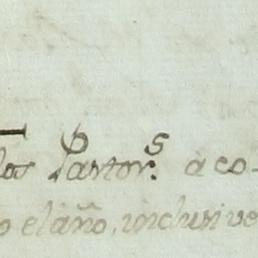 los Pastor.s à co-
o el año, inclusive